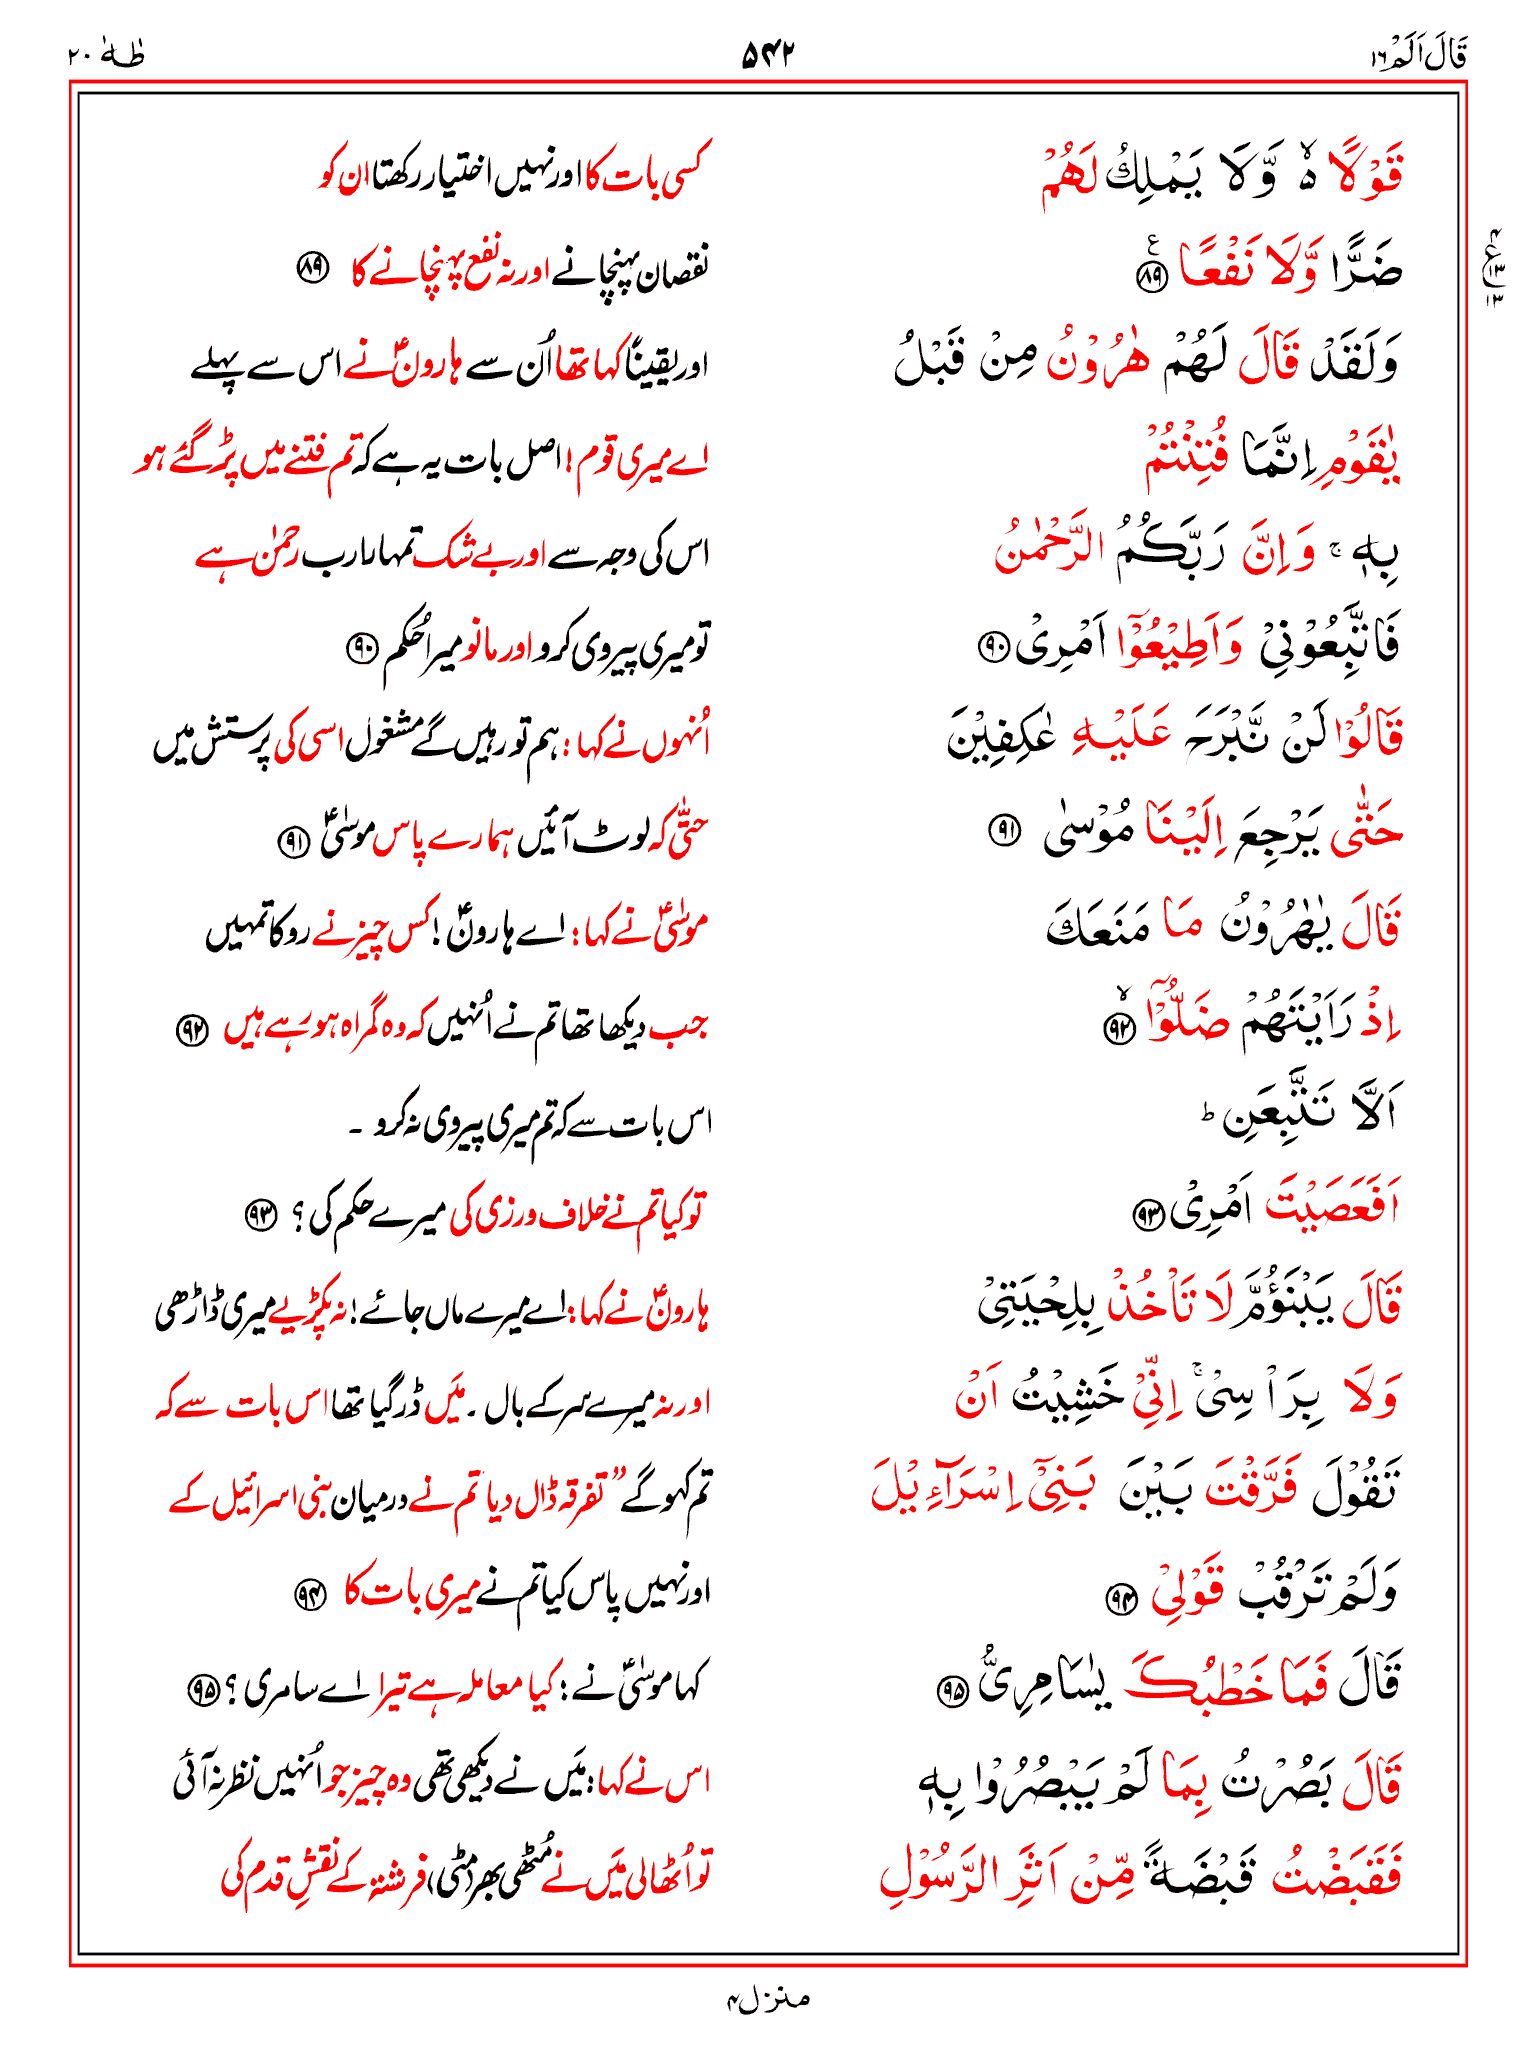 قَالَ اَلَمْ ١٦ ۵۴۲ طٰهٰ ٢٠
قَوْلًا ۙ۬ وَّلَا يَمْلِكُ لَهُمْ کسی بات کا اور نہیں اختیار رکھتا ان کو
ضَرًّا وَّلَا نَفْعًا ﴿۸۹﴾ نقصان پہنچانے اور نہ نفع پہنچانے کا ﴿۸۹﴾
وَلَقَدْ قَالَ لَهُمْ هٰرُوْنُ مِنْ قَبْلُ اور یقیناً کہا تھا اُن سے ہارونؑ نے اس سے پہلے
يٰقَوْمِ اِنَّمَا فُتِنْتُمْ اے میری قوم! اصل بات یہ ہے کہ تم فتنے میں پڑ گئے ہو
بِهٖ ۚ وَاِنَّ رَبَّكُمُ الرَّحْمٰنُ اس کی وجہ سے اور بے شک تمہارا رب رحمٰن ہے
فَاتَّبِعُوْنِيْ وَاَطِيْعُوْٓا اَمْرِيْ ﴿۹۰﴾ تو میری پیروی کرو اور مانو میرا حُکم ﴿۹۰﴾
قَالُوْا لَنْ نَّبْرَحَ عَلَيْهِ عٰكِفِيْنَ اُنہوں نے کہا: ہم تو رہیں گے مشغول اسی کی پرستش میں
حَتّٰى يَرْجِعَ اِلَيْنَا مُوْسٰى ﴿۹۱﴾ حتّٰی کہ لوٹ آئیں ہمارے پاس موسٰیؑ ﴿۹۱﴾
قَالَ يٰهٰرُوْنُ مَا مَنَعَكَ موسٰیؑ نے کہا: اے ہارونؑ! کس چیز نے روکا تمہیں
اِذْ رَاَيْتَهُمْ ضَلُّوْٓا ۙ﴿۹۲﴾ جب دیکھا تھا تم نے اُنہیں کہ وہ گمراہ ہو رہے ہیں ﴿۹۲﴾
اَلَّا تَتَّبِعَنِ ؕ اس بات سے کہ تم میری پیروی نہ کرو ۔
اَفَعَصَيْتَ اَمْرِيْ ﴿۹۳﴾ تو کیا تم نے خلاف ورزی کی میرے حکم کی؟ ﴿۹۳﴾
قَالَ يَبْنَؤُمَّ لَا تَاْخُذْ بِلِحْيَتِيْ ہارونؑ نے کہا: اے میرے ماں جائے! نہ پکڑیے میری ڈاڑھی
وَلَا بِرَاْسِيْ ۚ اِنِّيْ خَشِيْتُ اَنْ اور نہ میرے سر کے بال ۔ مَیں ڈر گیا تھا اس بات سے کہ
تَقُوْلَ فَرَّقْتَ بَيْنَ بَنِيْٓ اِسْرَآءِيْلَ تم کہو گے ”تفرقہ ڈال دیا تم نے درمیان بنی اسرائیل کے
وَلَمْ تَرْقُبْ قَوْلِيْ ﴿۹۴﴾ اور نہیں پاس کیا تم نے میری بات کا ﴿۹۴﴾
قَالَ فَمَا خَطْبُكَ يٰسَامِرِيُّ ﴿۹۵﴾ کہا موسٰیؑ نے: کیا معاملہ ہے تیرا اے سامری؟ ﴿۹۵﴾
قَالَ بَصُرْتُ بِمَا لَمْ يَبْصُرُوْا بِهٖ اس نے کہا: مَیں نے دیکھی تھی وہ چیز جو اُنہیں نظر نہ آئی
فَقَبَضْتُ قَبْضَةً مِّنْ اَثَرِ الرَّسُوْلِ تو اُٹھالی مَیں نے مُٹھی بھر (مٹی) فرشتہ کے نقشِ قدم کی
منزل ۴